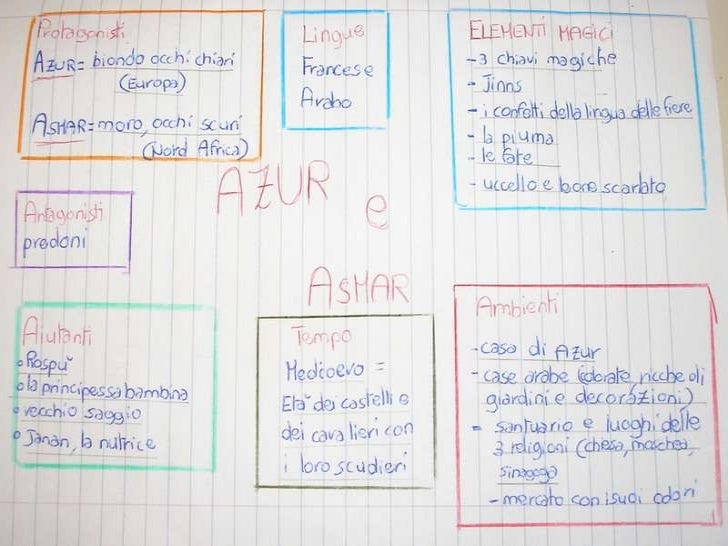 Protagonisti
AZUR = biondo occhi chiari
(Europa)
ASMAR = moro, occhi scuri
(Nord Africa)
Lingue
Francese
Arabo
ELEMENTI MAGICI
- 3 chiavi magiche
- Jinns
- i confetti della lingua delle fiere
- la piuma
- le fate
- uccello e leone scarlato
AZUR e
ASMAR
Antagonisti
predoni
Aiutanti
Rospù
la principessa bambina
vecchio saggio
Janan, la nutrice
Tempo
Medioevo =
Età dei castelli e
dei cavalieri con
i loro scudieri
Ambienti
- casa di Azur
- case arabe (odorate, ricche di
giardini e decorazioni)
- santuario e luoghi delle
3 religioni (chiesa, moschea,
sinagoga
- mercato con i suoi odori